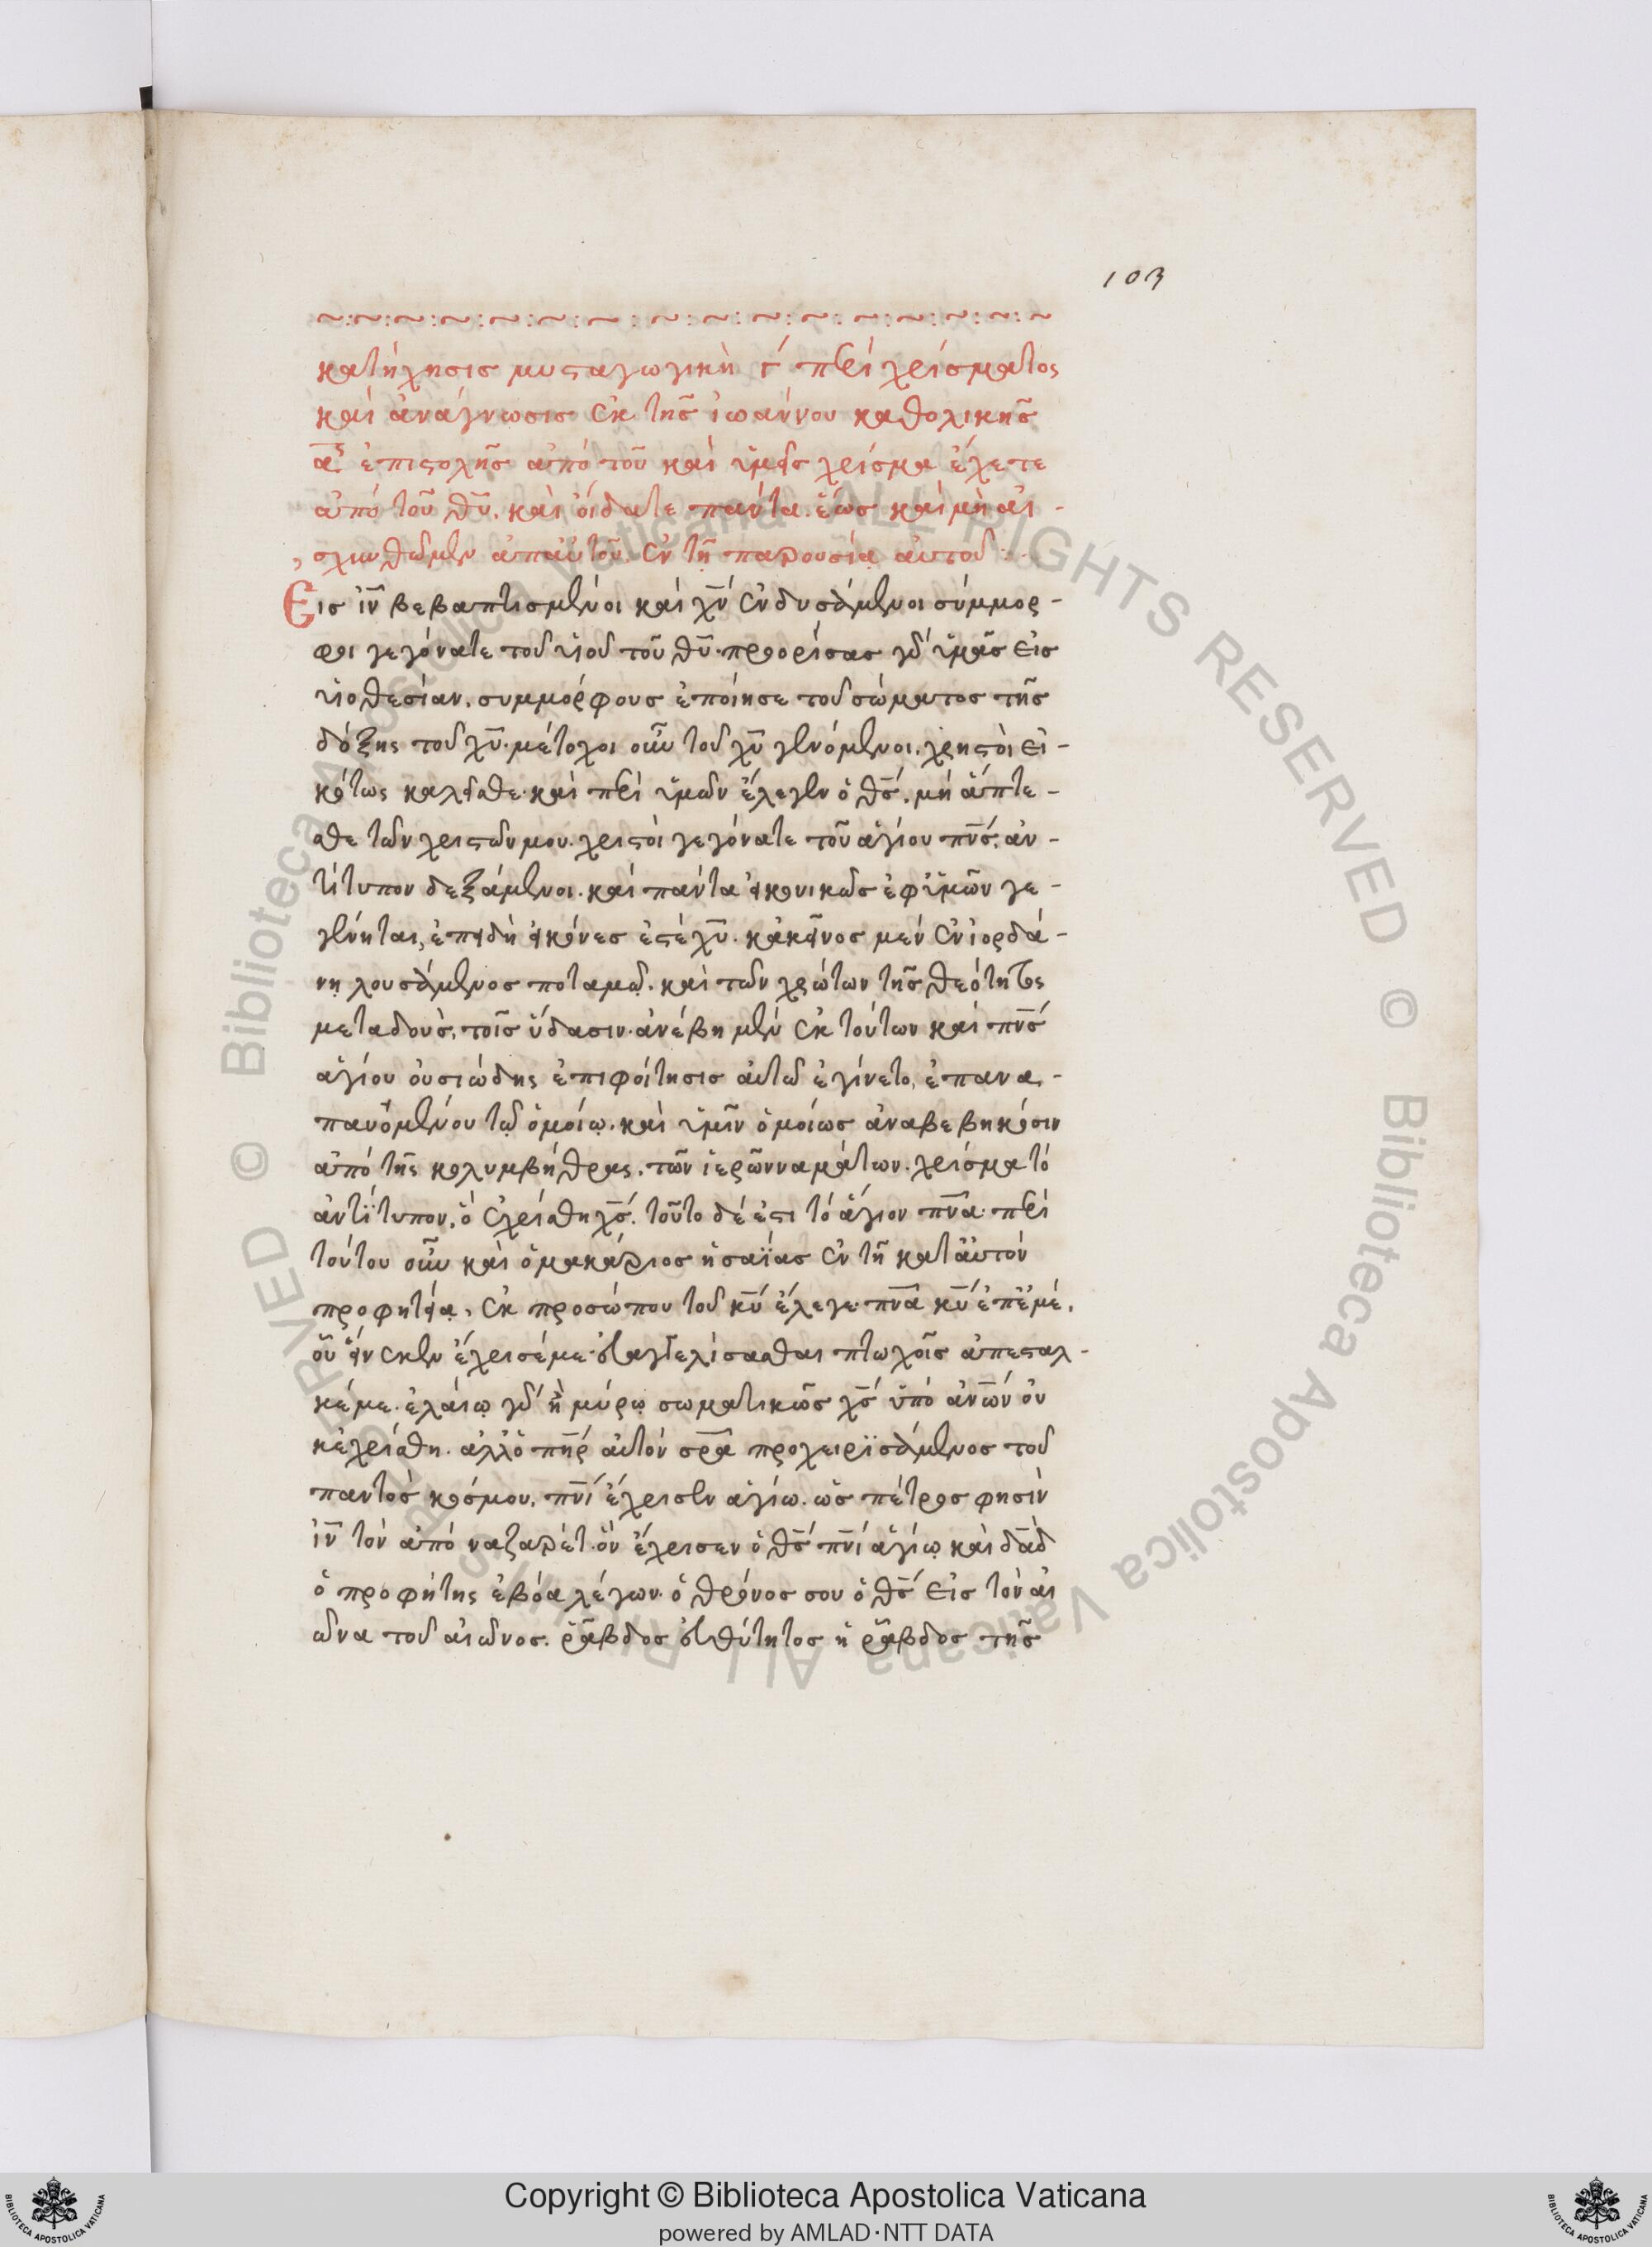 103
κατήχησις μυςαγωγικὴ γ́ περὶ χρίσματος
καὶ ἀνάγνωσις ἐκ τῆς ἰωάννου καθολικῆς
α ἐπιςολῆς ἀπὸ τοῦ καὶ ὑμεῖς χρίσμα ἔχετε
ἀπὸ τοῦ θῦ. καὶ οἴδατε πάντα. ἕως καὶ μὴ αἰ-
σχυνθῶμεν ἀπ' αὐτοῦ. ἐν τῇ παρουσίᾳ αὐτοῦ :
Εἰς ἰν̄ βεβαπτισμένοι καὶ χν̄ ἐνδυσάμενοι σύμμορ-
φοι γεγόνατε τοῦ υἱοῦ τοῦ θῦ. προορίσας γὰρ ὑμᾶς εἰς
υἱοθεσίαν. συμμόρφους ἐποίησε τοῦ σώματος τῆς
δόξης τοῦ χῦ. μέτοχοι οὖν τοῦ χῦ γενόμενοι. χρηςοὶ εἰ-
κότως καλεῖσθε. καὶ περὶ ὑμῶν ἔλεγεν ὁ θς̄. μὴ ἅπτε-
σθε τῶν χριςῶν μου. χριςοὶ γεγόνατε τοῦ ἁγίου πνς̄. ἀν-
τίτυπον δεξάμενοι. καὶ πάντα εἰκονικῶς ἐφ' ὑμῶν γε-
γένηται, ἐπειδὴ εἰκόνες ἐςὲ χῦ. κἀκεῖνος μὲν ἐν ἰορδά-
νῃ λουσάμενος ποταμῷ. καὶ τῶν χρώτων τῆς θεότητος
μεταδοὺς, τοῖς ὕδασιν. ἀνέβη μὲν ἐκ τούτων καὶ πνς̄
ἁγίου οὐσιώδης ἐπιφοίτησις αὐτῷ ἐγίνετο, ἐπανα-
παυομένου τῷ ὁμοίῳ. καὶ ὑμῖν ὁμοίως ἀναβεβηκόσιν
ἀπὸ τῆς κολυμβήθρας. τῶν ἱερῶν ναμάτων. χρίσμα τὸ
ἀντίτυπον, ὃ ἐχρίσθη χς̄. τοῦτο δέ ἐςι τὸ ἅγιον πνᾶ. περὶ
τούτου οὖν καὶ ὁ μακάριος ἡσαΐας ἐν τῇ κατ' αὐτὸν
προφητείᾳ, ἐκ προσώπου τοῦ κῦ ἔλεγε. πνᾶ κῦ ἐπ' ἐμέ.
οὗ εἵνεκεν ἔχρισέ με. εὐαγγελίσασθαι πτωχοῖς ἀπέςαλ-
κέ με. ἐλαίῳ γὰρ ἢ μύρῳ σωματικῶς χς̄ ὑπὸ ἀνων̄ οὐ
κ ἐχρίσθη. ἀλλ' ὁ πηρ̄ αὐτὸν σρᾱ προχειρϊσάμενος τοῦ
παντὸς κόσμου, πνῑ ἔχρισεν ἁγίω. ὡς πέτρος φησὶν
ἰν̄ τὸν ἀπὸ ναζαρέτ. ὃν ἔχρισεν ὁ θς̄ πνῑ ἁγίῳ καὶ δᾱδ
ὁ προφήτης ἐβόα λέγων. ὁ θρόνος σου ὁ θς̄ εἰς τὸν αἰ
ῶνα τοῦ αἰῶνος. ῥάβδος εὐθύτητος ἡ ῥάβδος τῆς
Copyright © Biblioteca Apostolica Vaticana
powered by AMLAD·NTT DATA